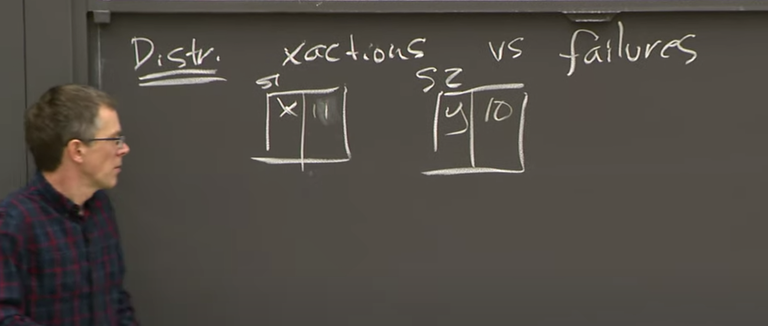 Distr. xactions vs failures
S1 S2
x 11 y 10